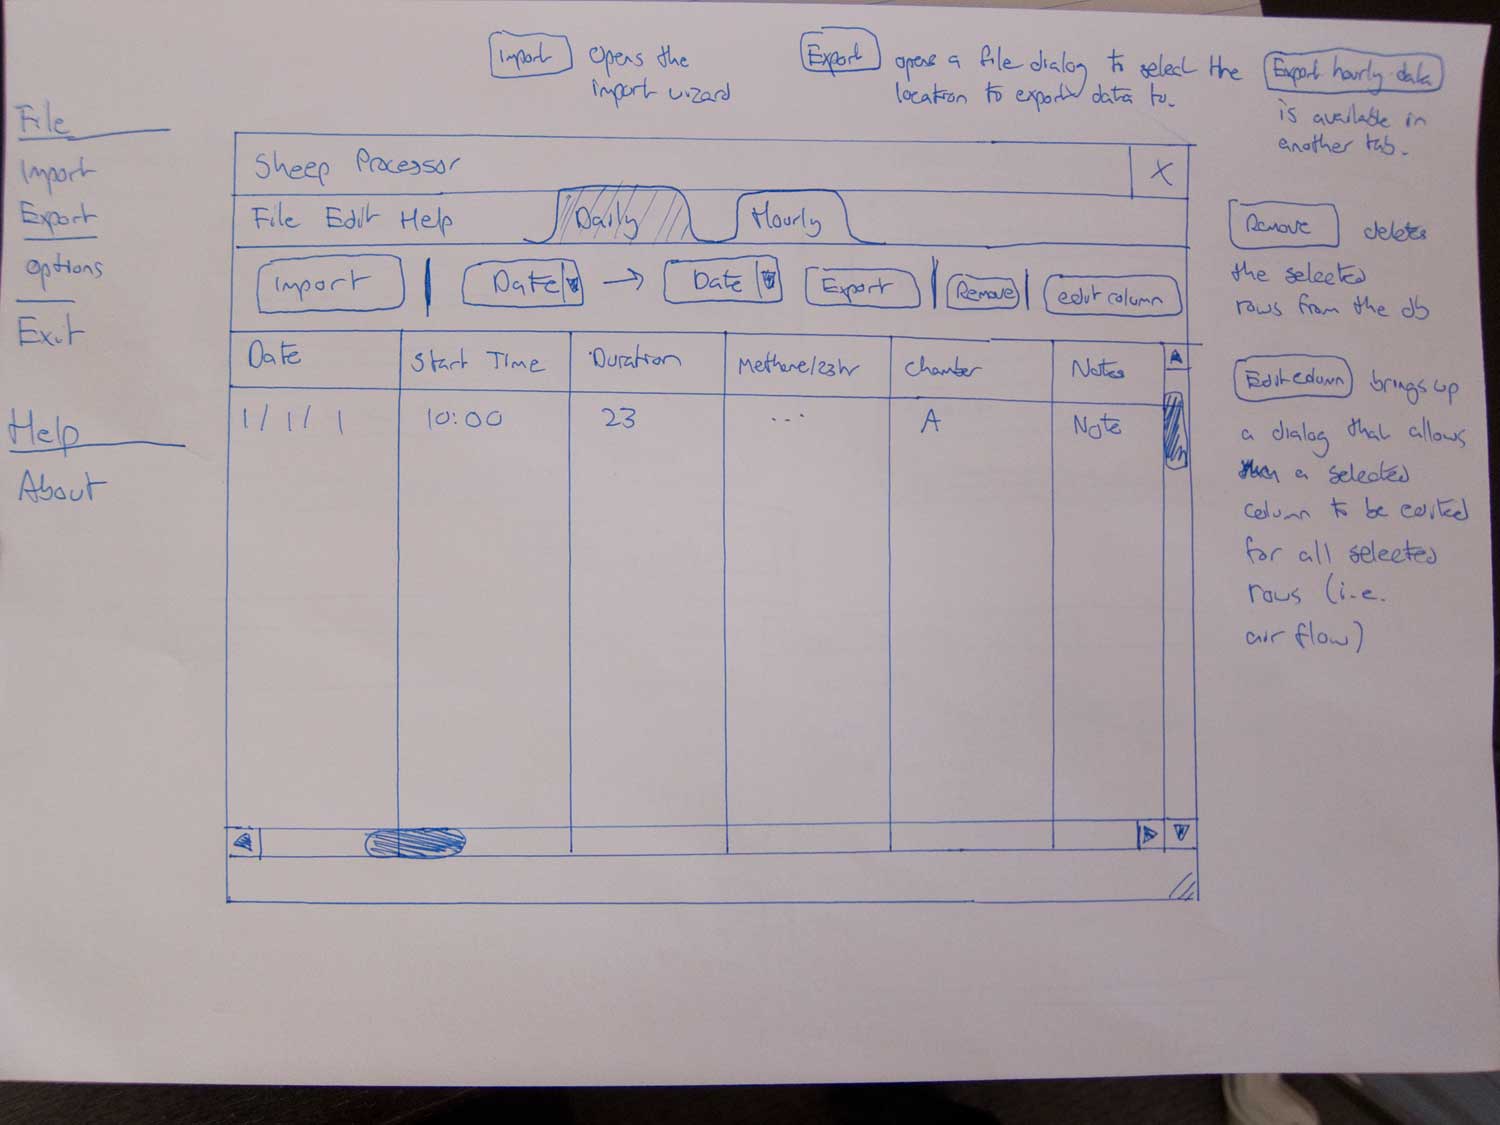 Import Opens the
import wizard
Export opens a file dialog to select the
location to export data to.
Export hourly data
is available in
another tab.
File
Import
Export
options
Exit
Help
About
Sheep Processor X
File Edit Help Daily Hourly
Import Date → Date Export Remove edit column
Date Start Time Duration Methane/23hr Chamber Notes
1/1/1 10:00 23 ... A Note
Remove deletes
the selected
rows from the db
Edit column brings up
a dialog that allows
a selected
column to be edited
for all selected
rows (i.e.
air flow)